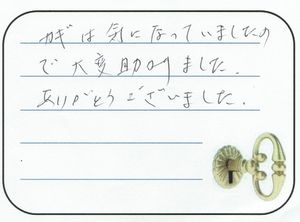 カギは気になっていましたの
で大変助かりました.
ありがとうございました.